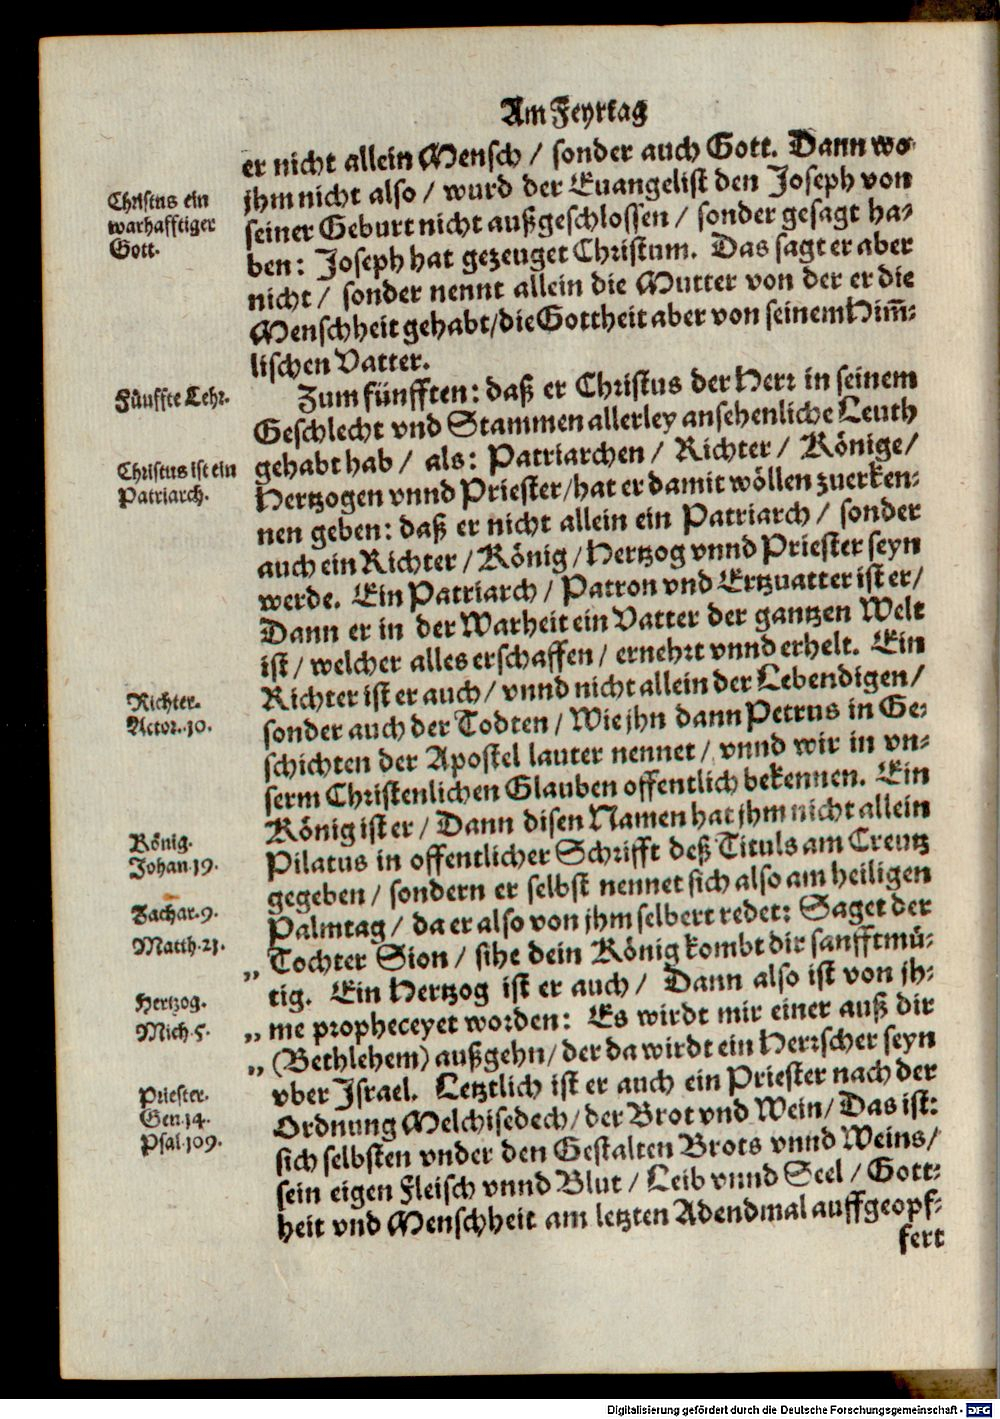 Am Feyrtag
er nicht allein Mensch / sonder auch Gott. Dann wo
jhm nicht also / wurd der Euangelist den Joseph von
Christus ein
warhafftiger
Gott.
seiner Geburt nicht außgeschlossen / sonder gesagt ha-
ben: Joseph hat gezeuget Christum. Das sagt er aber
nicht / sonder nennt allein die Mutter von der er die
Menschheit gehabt/die Gottheit aber von seinem Him̃-
lischen Vatter.
Fünffte Lehr.
Zum fünfften: daß er Christus der Herr in seinem
Geschlecht vnd Stammen allerley ansehenliche Leuth
gehabt hab / als: Patriarchen / Richter / Könige/
Christus ist ein
Patriarch.
Hertzogen vnnd Priester/hat er damit wöllen zuerken-
nen geben: daß er nicht allein ein Patriarch / sonder
auch ein Richter / König / Hertzog vnnd Priester seyn
werde. Ein Patriarch / Patron vnd Ertzuatter ist er/
Dann er in der Warheit ein Vatter der gantzen Welt
ist / welcher alles erschaffen / ernehrt vnnd erhelt. Ein
Richter.
Actor.10.
Richter ist er auch / vnnd nicht allein der Lebendigen /
sonder auch der Todten / Wie jhn dann Petrus in Ge-
schichten der Apostel lauter nennet / vnnd wir in vn-
serm Christenlichen Glauben offentlich bekennen. Ein
König.
Johan.19.
König ist er / Dann disen Namen hat jhm nicht allein
Pilatus in offentlicher Schrifft deß Tituls am Creutz
gegeben / sondern er selbst nennet sich also am heiligen
Zachar.9.
Matth.21.
Palmtag / da er also von jhm selbert redet: Saget der
„ Tochter Sion / sihe dein König kombt dir sanfftmü-
Hertzog.
Mich.5.
tig. Ein Hertzog ist er auch / Dann also ist von jh-
„ me propheceyet worden: Es wirdt mir einer auß dir
„ (Bethlehem) außgehn/ der da wirdt ein Herrscher seyn
Priester.
Gen.14.
Psal.109.
vber Israel. Letztlich ist er auch ein Priester nach der
Ordnung Melchisedech / der Brot vnd Wein / Das ist:
sich selbsten vnder den Gestalten Brots vnnd Weins /
sein eigen Fleisch vnnd Blut / Leib vnnd Seel / Gott-
heit vnd Menschheit am letzten Adendmal auffgeopf-
fert
Digitalisierung gefördert durch die Deutsche Forschungsgemeinschaft - DFG